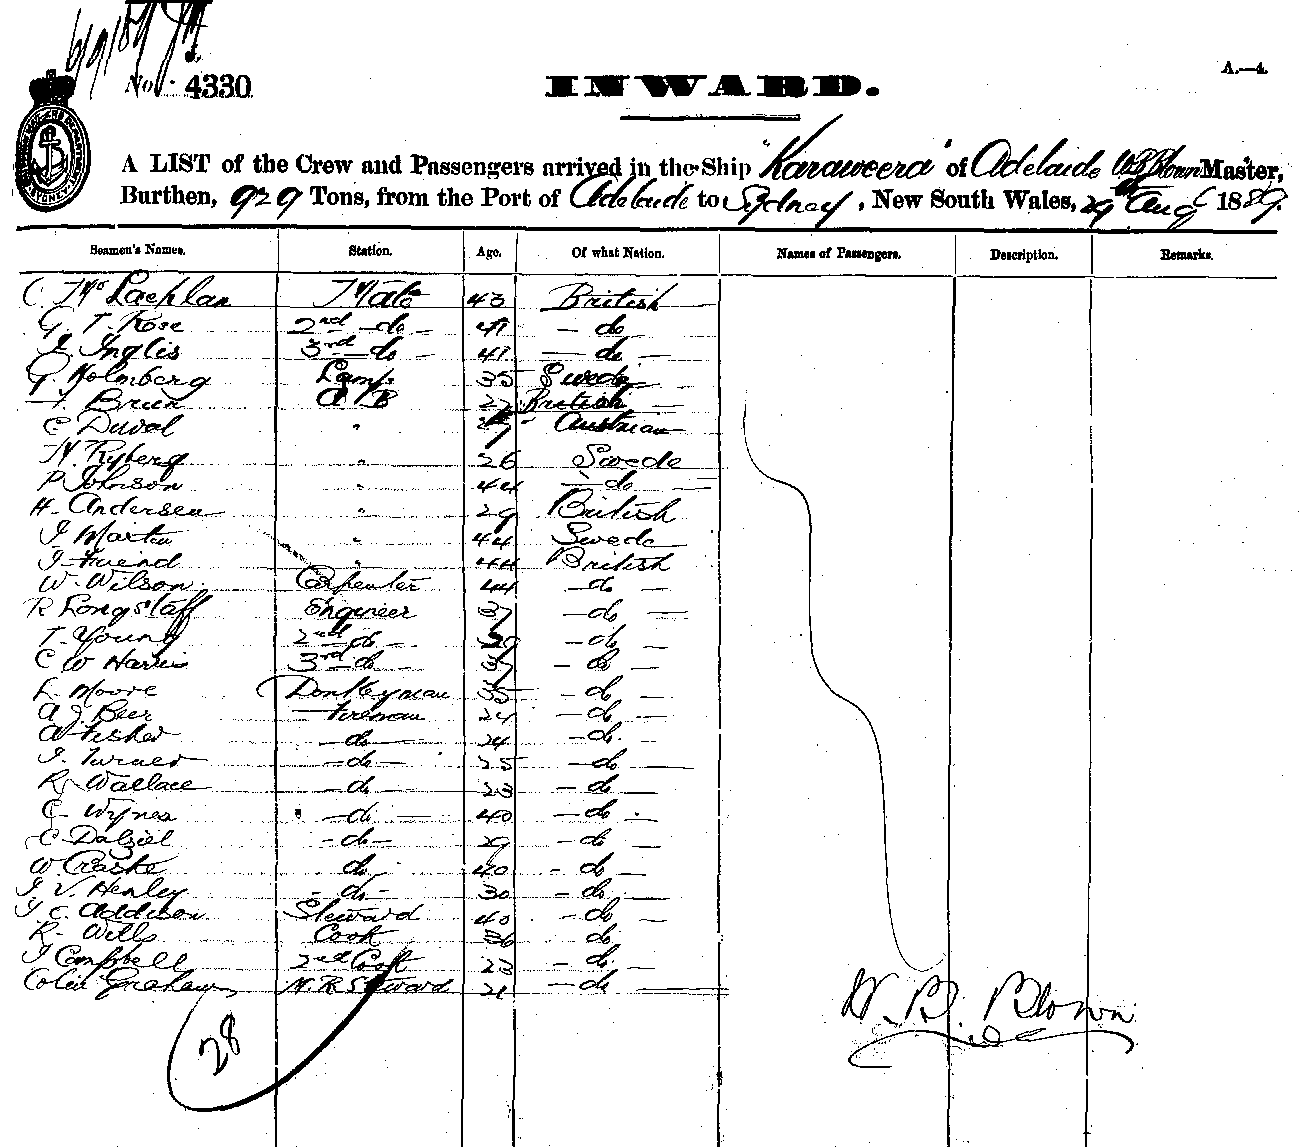 6/9/89
No. 4330
A.—4.
INWARD.
A LIST of the Crew and Passengers arrived in the Ship "Karaweera" of Adelaide W B Blown Master,
Burthen, 929 Tons, from the Port of Adelaide to Sydney, New South Wales, 29 Aug 1889.
Seamen's Names. Station. Age. Of what Nation. Names of Passengers. Description. Remarks.
C. McLachlan Mate 43 British
G T Rose 2nd do 41 do
J Inglis 3rd do 41 do
G. Holmberg Lamp. 35 Swede
Brien A B 27 British
C Duval " Austrian
Ryberg " 26 Swede
P Johnson " 44 do
H. Andersen " 29 British
J Martin " 44 Swede
J Friend " 44 British
W. Wilson Carpenter 44 do
R Longstaff Engineer 37 do
T. Young 2nd do do
C W Harris 3rd do 37 do
L Moore Donkeyman 35 do
A J Beer Fireman 24 do
A Fisher do 24 do
J. Turner do 25 do
R. Wallace do 23 do
C. Wynes do 40 do
C Dalziel do 29 do
W Craske do 40 do
J. V. Henley do 30 do
J C. Addison Steward 40 do
R. Wills Cook 36 do
J Campbell 2nd Cook 23 do
Colin Graham M. R Steward 21 do
28
W. B. Blown